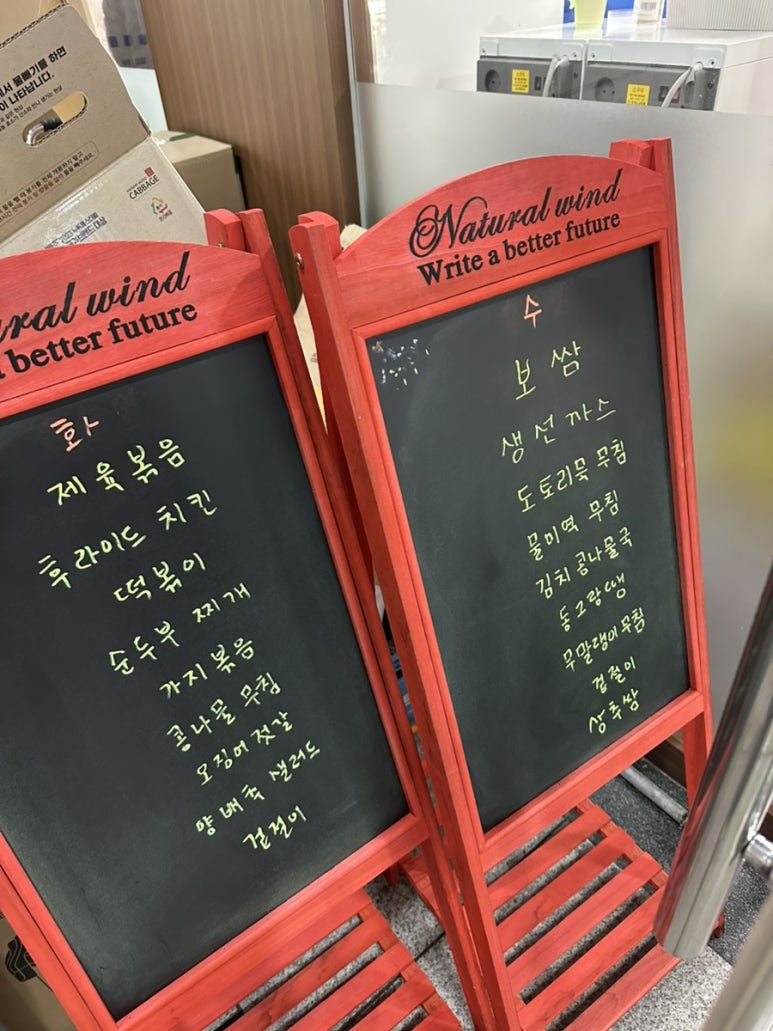 서 물빼기를 하면
이 나타납니다.
CABBAGE
ral wind
a better future
화
제육볶음
후라이드 치킨
떡볶이
순두부 찌개
가지볶음
콩나물 무침
오징어젓갈
양배추 샐러드
겉절이
Natural wind
Write a better future
수
보쌈
생선까스
도토리묵 무침
물미역 무침
김치 콩나물국
동그랑땡
무말랭이 무침
겉절이
상추쌈